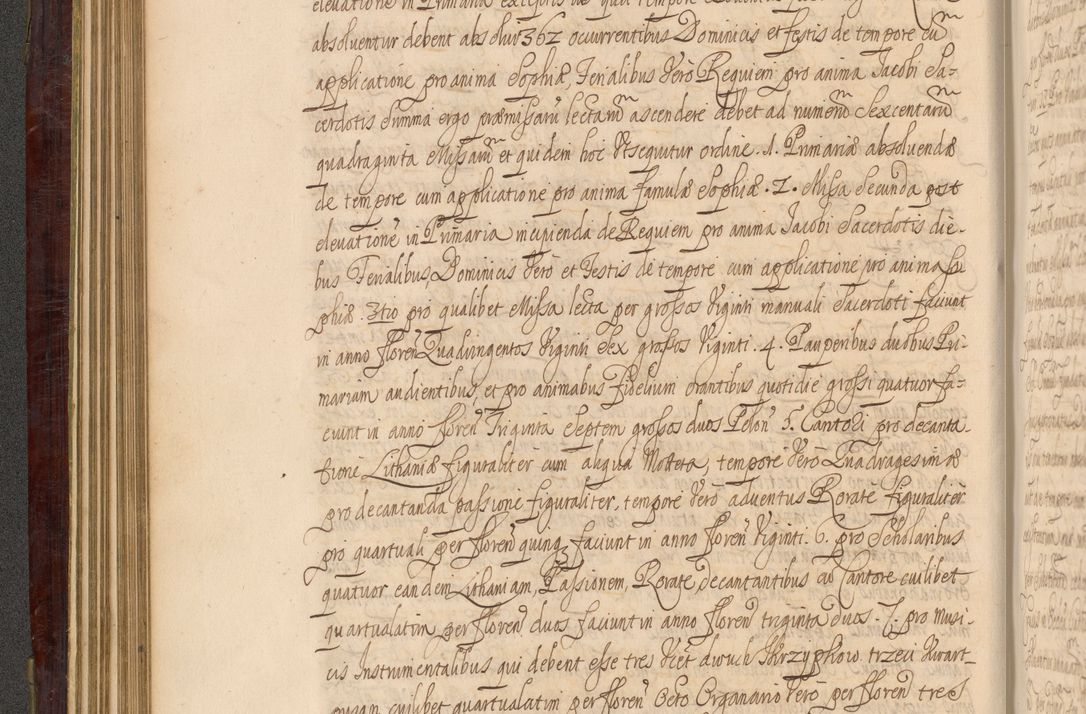 elevatione in Primaria exceptis de qua tempore
absolventur debent absolvi 362 occurrentibus Dominicis et festis de tempore cũ
applicatione pro anima Sophiæ, Ferialibus verò Requiem pro anima Jacobi Sa=
cerdotis Summa ergo præmissarũ lectarũ ascendere debet ad numerũ Sexcentarũ
quadraginta Missarũ et quidem hoc Vtsequitur ordine. 1. Primariæ absolvendæ
de tempore cum applicatione pro anima famulæ Sophiæ. 2. Missa Secunda post
elevationē in Primaria incipienda de Requiem pro anima Jacobi Sacerdotis die-
bus Ferialibus, Dominicis verò et Festis de tempore cum applicatione pro anima So
phiæ. 3tio pro qualibet Missa lecta per grossos Viginti manuali Sacerdoti faciunt
in anno floren Quadringentos Viginti Sex grossos Viginti. 4. Pauperibus duobus Pri-
mariam audientibus, et pro animabus Fidelium orantibus quotidie grossi quatuor fa=
ciunt in anno floren Triginta Septem grossos duos Polon 5. Cantori pro decanta-
tione Lithaniæ figuraliter cum aliqua Motteta, tempore verò Quadragesimæ
pro decantanda passione figuraliter, tempore verò adventus Rorate figuraliter
pro quartuali per floren quinq3 faciunt in anno floren Viginti. 6. pro Scholaribus
quatuor eandem Lithaniam, Passionem, Rorate, decantantibus cũ Cantore cuilibet
quartualatim per floren duos faciunt in anno floren triginta duos. 7. pro Musi-
cis Instrumentalibus qui debent esse tres Vict dwuch Skrzypkow trzeci Kwart-
cuilibet quartualatim per floren Octo Organario verò per floren tres